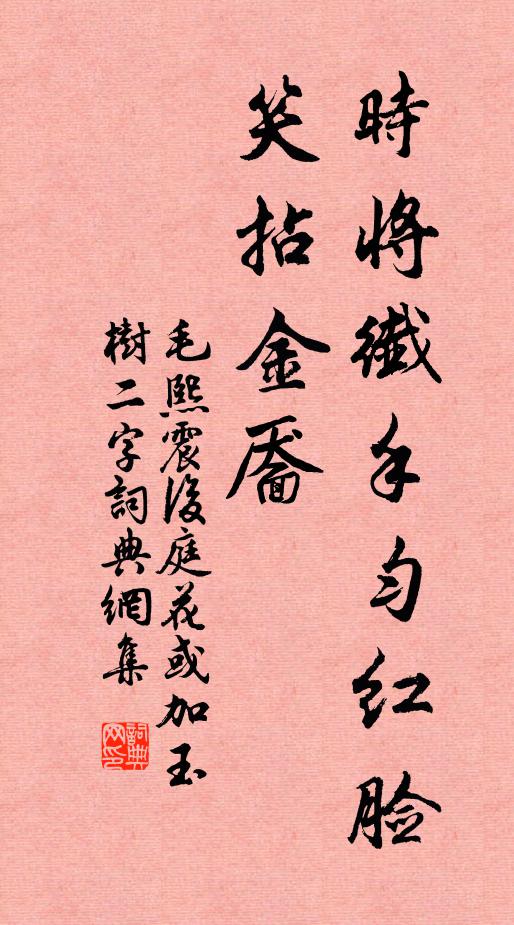 時將纖手勻紅臉
笑拈金靨
毛熙震後庭花或加玉
樹二字詞典網集
詞典网印